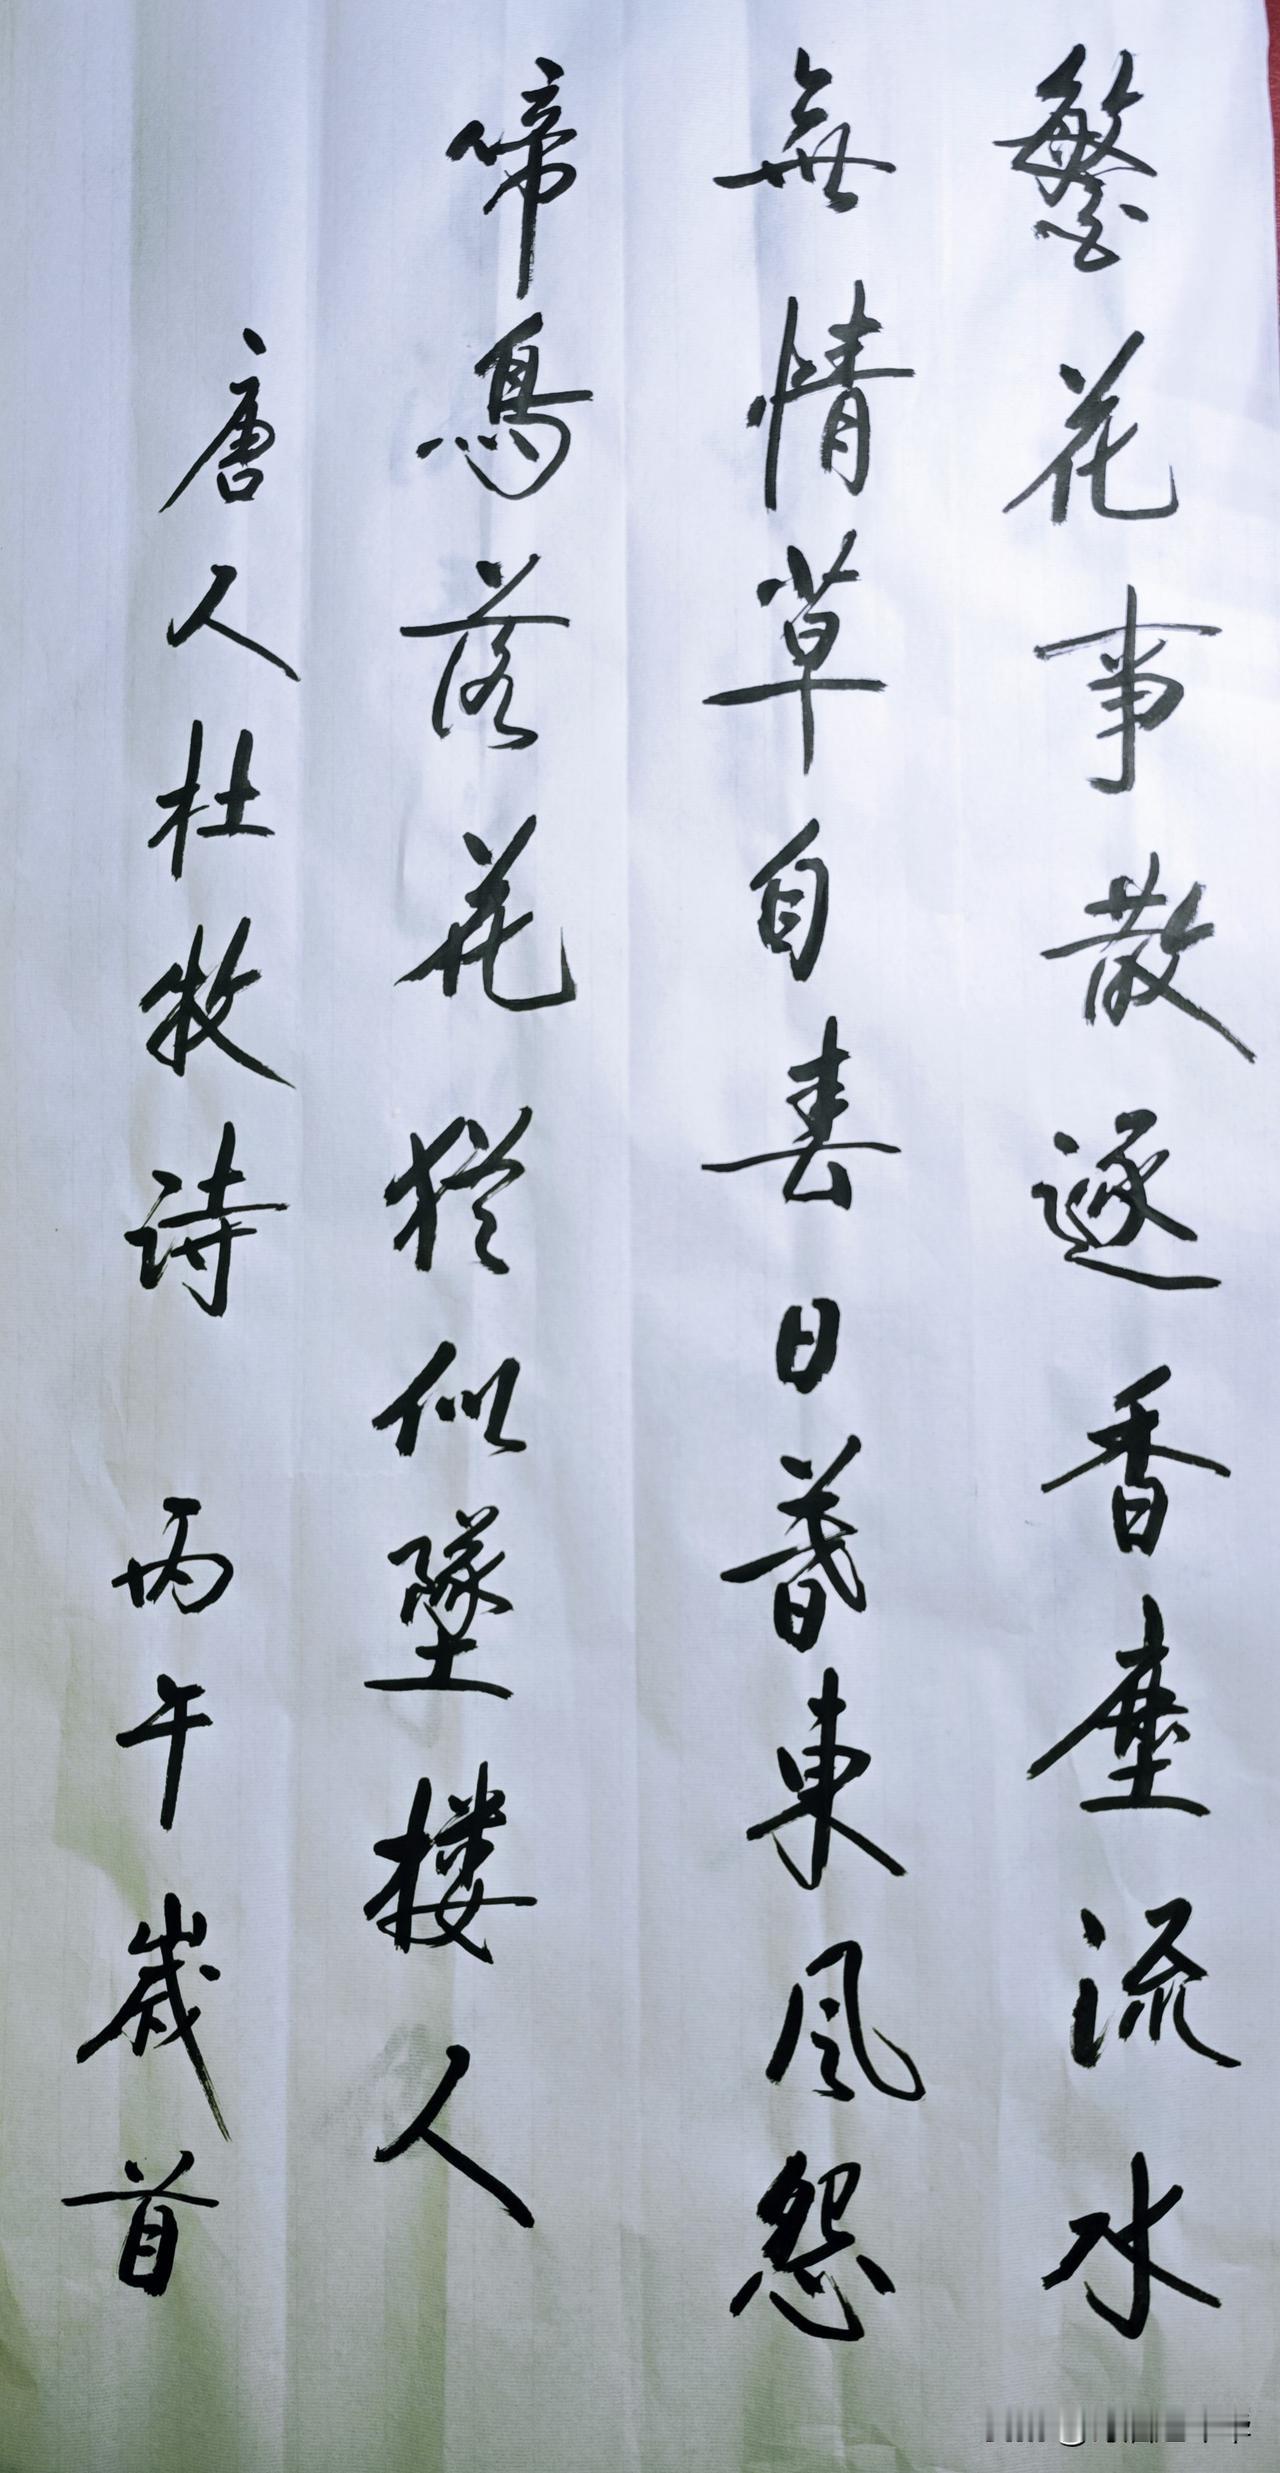 繁花事散逐香塵流水
無情草自春日暮東風怨
啼鳥落花犹似墜楼人
唐人杜牧诗 丙午歲首